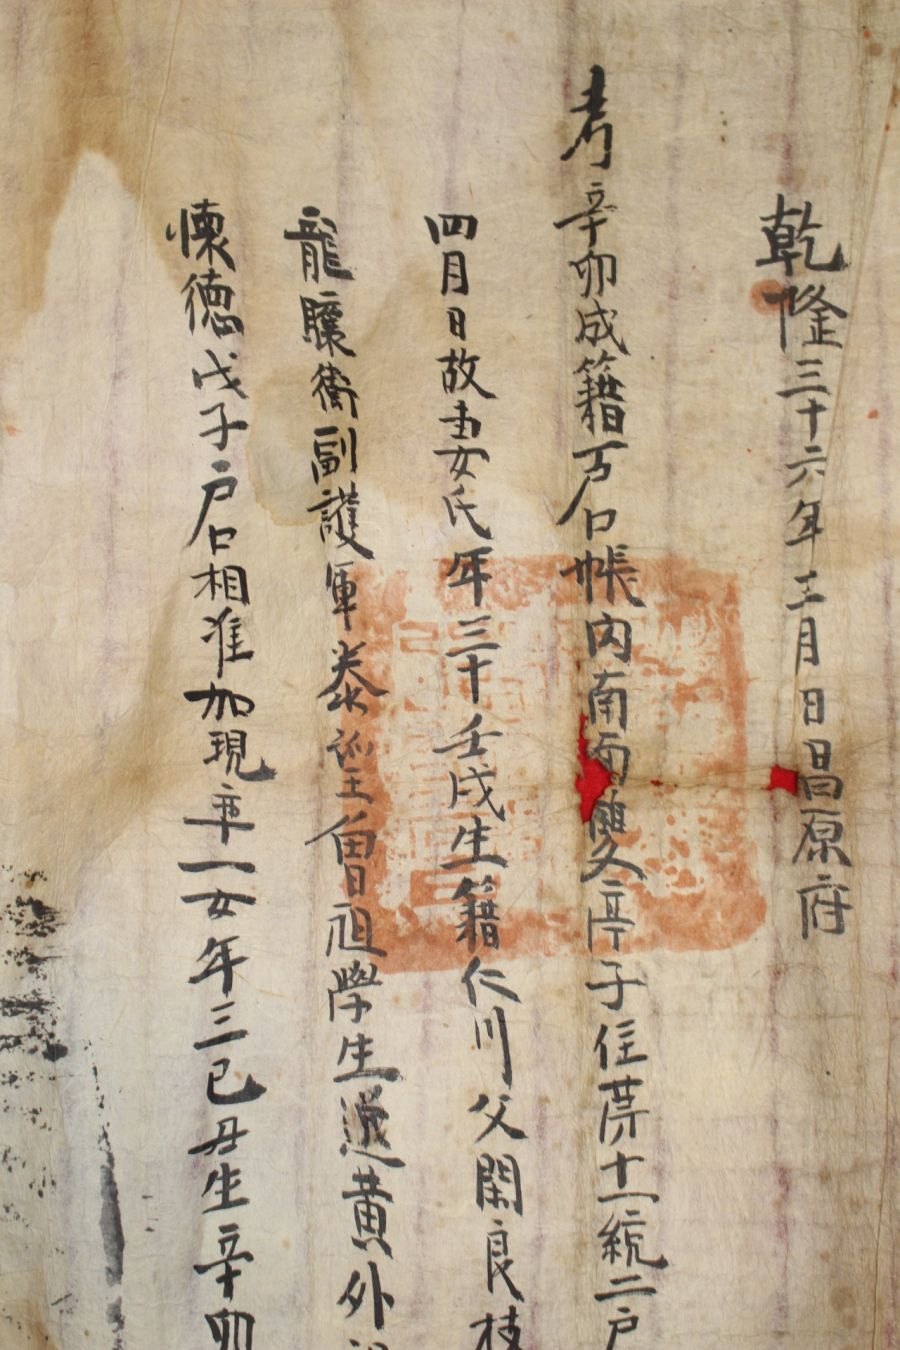 乾隆三十六年十二月日昌原府
考辛卯成籍戶口帳內南面雙亭子住第十一統二戶
四月日故妻氏年三十壬戌生籍仁川父閑良枝
龍驤衛副護軍泰 曾祖學生 黄外
懷德戊子戶口相准加現率一女年三己丑生辛卯